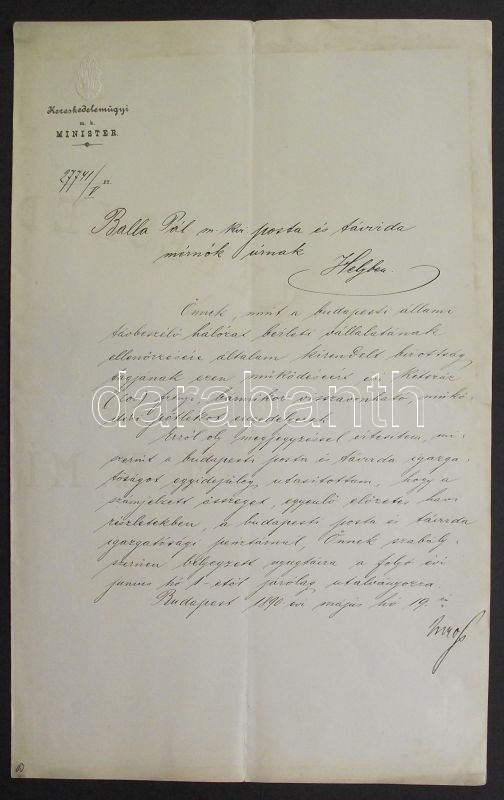 Kereskedelemügyi
m. k.
MINISTER.
27741/V sz.
Balla Pál m. kir. posta és távirda
mérnök úrnak
Helyben.
Önnek, mint a budapesti állami
távbeszélő hálózat bérleti vállalatának
ellenőrzésére általam kirendelt bizottság
tagjának ezen működéseért évi kétszáz
(200) frtnyi bármikor visszavonható műkö-
dési pótlékot engedélyezek.
Erről oly megjegyzéssel értesítem, mi-
szerint a budapesti posta és távirda igazga-
tóságot egyidejüleg utasítottam, hogy a
számjelzett összeget, egyenlő előzetes havi
részletekben, a budapesti posta és távirda
igazgatósági pénztárnál, Önnek szabály-
szerüen bélyegzett nyugtáira a folyó évi
junius hó 1-étől fárólag utalványozza.
Budapest 1890 évi május hó 19. én
darabanth